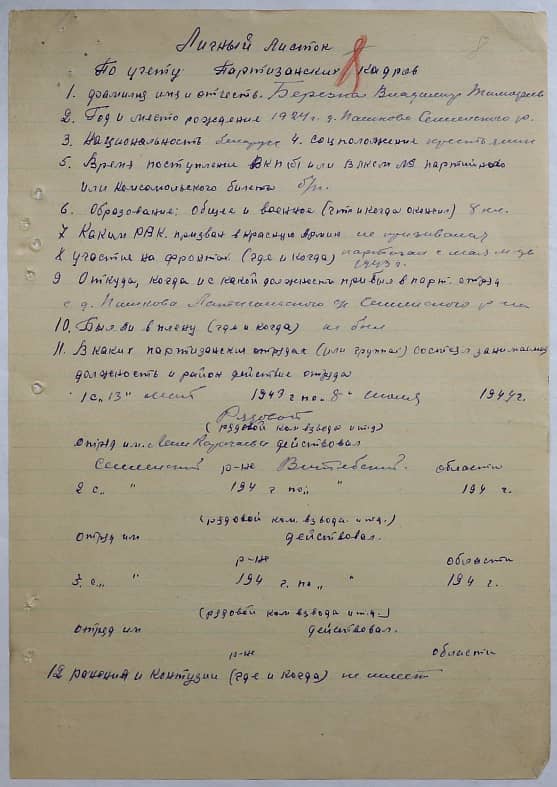 Личный листок
По учету Партизанских кадров
1. фамилия имя и отчеств. Владимир
2. Год и место рождения 1924 г. д. Пашково Сенненского р.
3. Национальность беларус 4. соцположение крестьянин
5. Время поступления ВКП(б) или ВЛКСМ № партийного
или Комсомольского билета б/п.
6. Образование: Общее и военное (что и когда окончил) 8 кл.
7 Каким РВК. призван в красную армию не призывался
8 участие на фронтах (где и когда) партизан с мая м-ца
1943 г.
9 Откуда, когда и с какой должности прибыл в парт. отряд
с д. Пашкова Сенненского р-на
10. Был ли в плену (где и когда) не был
11. В каких партизанских отрядах (или группах) состоял занимаемая
должность и район действие отряда
1 с „13" 1943 г по „8" июля 1944 г.
Рядовой
(рядовой ком взвода и т.д)
отряд им. действовал
Сенненский р-не Витебский. области
2 с „ " 194 г по „ " 194 г.
(рядовой ком. взвода. и т.д.)
отряд им действовал.
р-не области
3. с „ " 194 г. по „ " 194 г.
(рядовой ком взвода и т.д.)
отряд им действовал.
р-не области
12 ранения и контузии (где и когда) не имеет